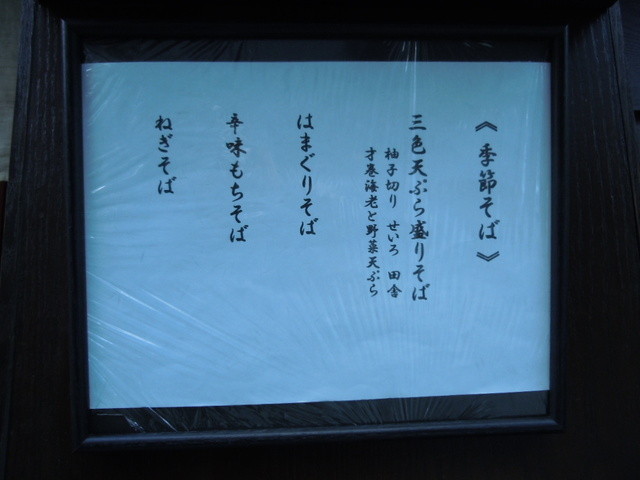 《季節そば》
三色天ぷら盛りそば
柚子切り せいろ 田舎
才巻海老と野菜天ぷら
はまぐりそば
辛味もちそば
ねぎそば